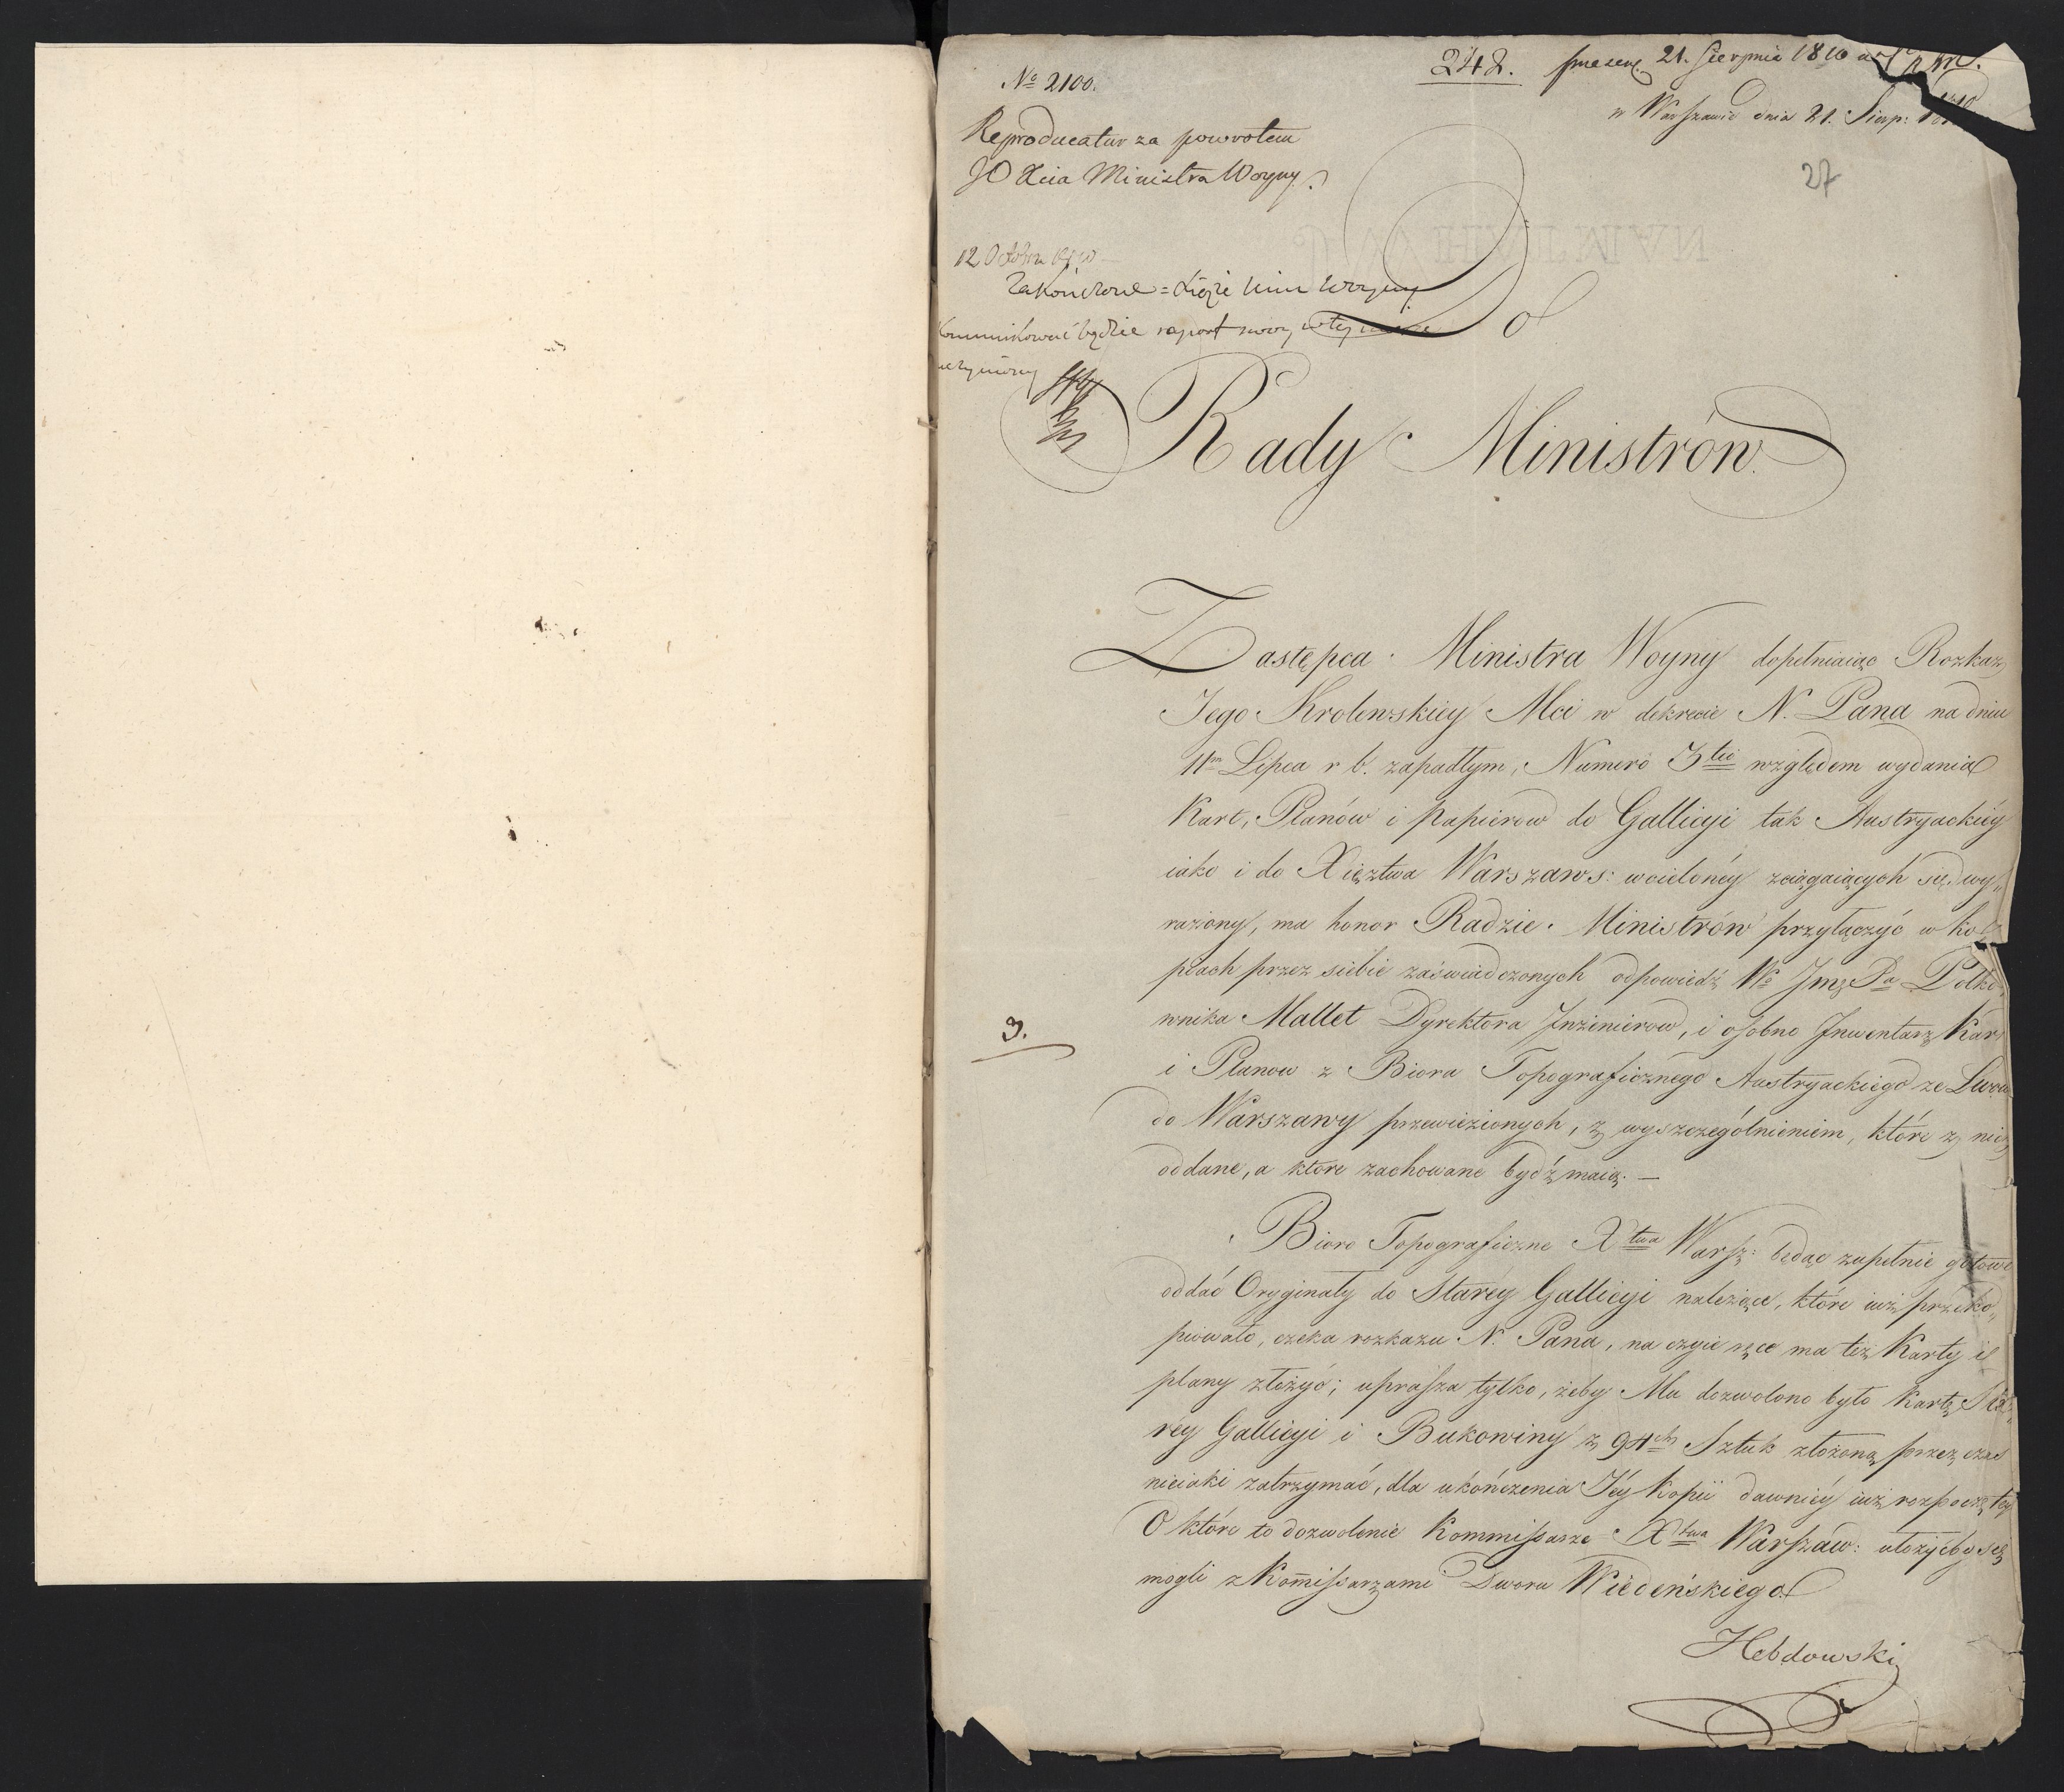 No 2100.
242. 21. Sierpnia 1810
w Warszawie dnia 21. Sierp: 1810
27
Reproducatur za powrotem
JO Xcia Ministra Woyny.
J WHATMAN
12 Octobra 1810
Zakończone = Xiąże Min Woyny
kommunikować będzie raport swoy w tey
uczyniony
Do
Rady Ministrów.
Zastępca Ministra Woyny dopełniaiąc Rozkaz
Jego Krolewskiey Mci w dekrecie N. Pana na dniu
11m Lipca r b. zapadłym, Numero 3tio względem wydania
Kart, Planów i papierow do Gallicyi tak Austryackiéy
iako i do Xięztwa Warszaws: wcielonéy zciągaiących się wy,,
rażony, ma honor Radzie Ministrów przyłączyć w ko,,
piach przez siebie zaświadczonych odpowiedź Wo Jmć Pa Półko,,
wnika Mallet Dyrektora Inzinierow, i osobno Inwentarz Kart
i Planow z Biora Topograficznego Austryackiego ze Lwowa
3.
do Warszawy przewiezionych, z wyszczególnieniem, które z nich
oddane, a ktore zachowane bydź maią. —
Bioro Topograficzne Xtwa Warsz: będąc zupełnie gotowe
oddać Oryginały do Staréy Gallicyi należące, które iuż przeko,,
piowało, czeka rozkazu N. Pana, na czyie ręce ma też Karty i
plany złożyć; uprasza tylko, żeby Mu dozwolono było Kartę Sta,,
rey Gallicyi i Bukowiny z 94ch Sztuk złożoną przez czas
nieiaki zatrzymać, dla ukończenia Jéy Kopii dawniéy iuż rozpoczętéy
O które to dozwolenie Kommissarze Xtwa Warszaw: ułożyćby się
mogli z Kom̄issarzami Dworu Wiedeńskiego.
Hebdowski